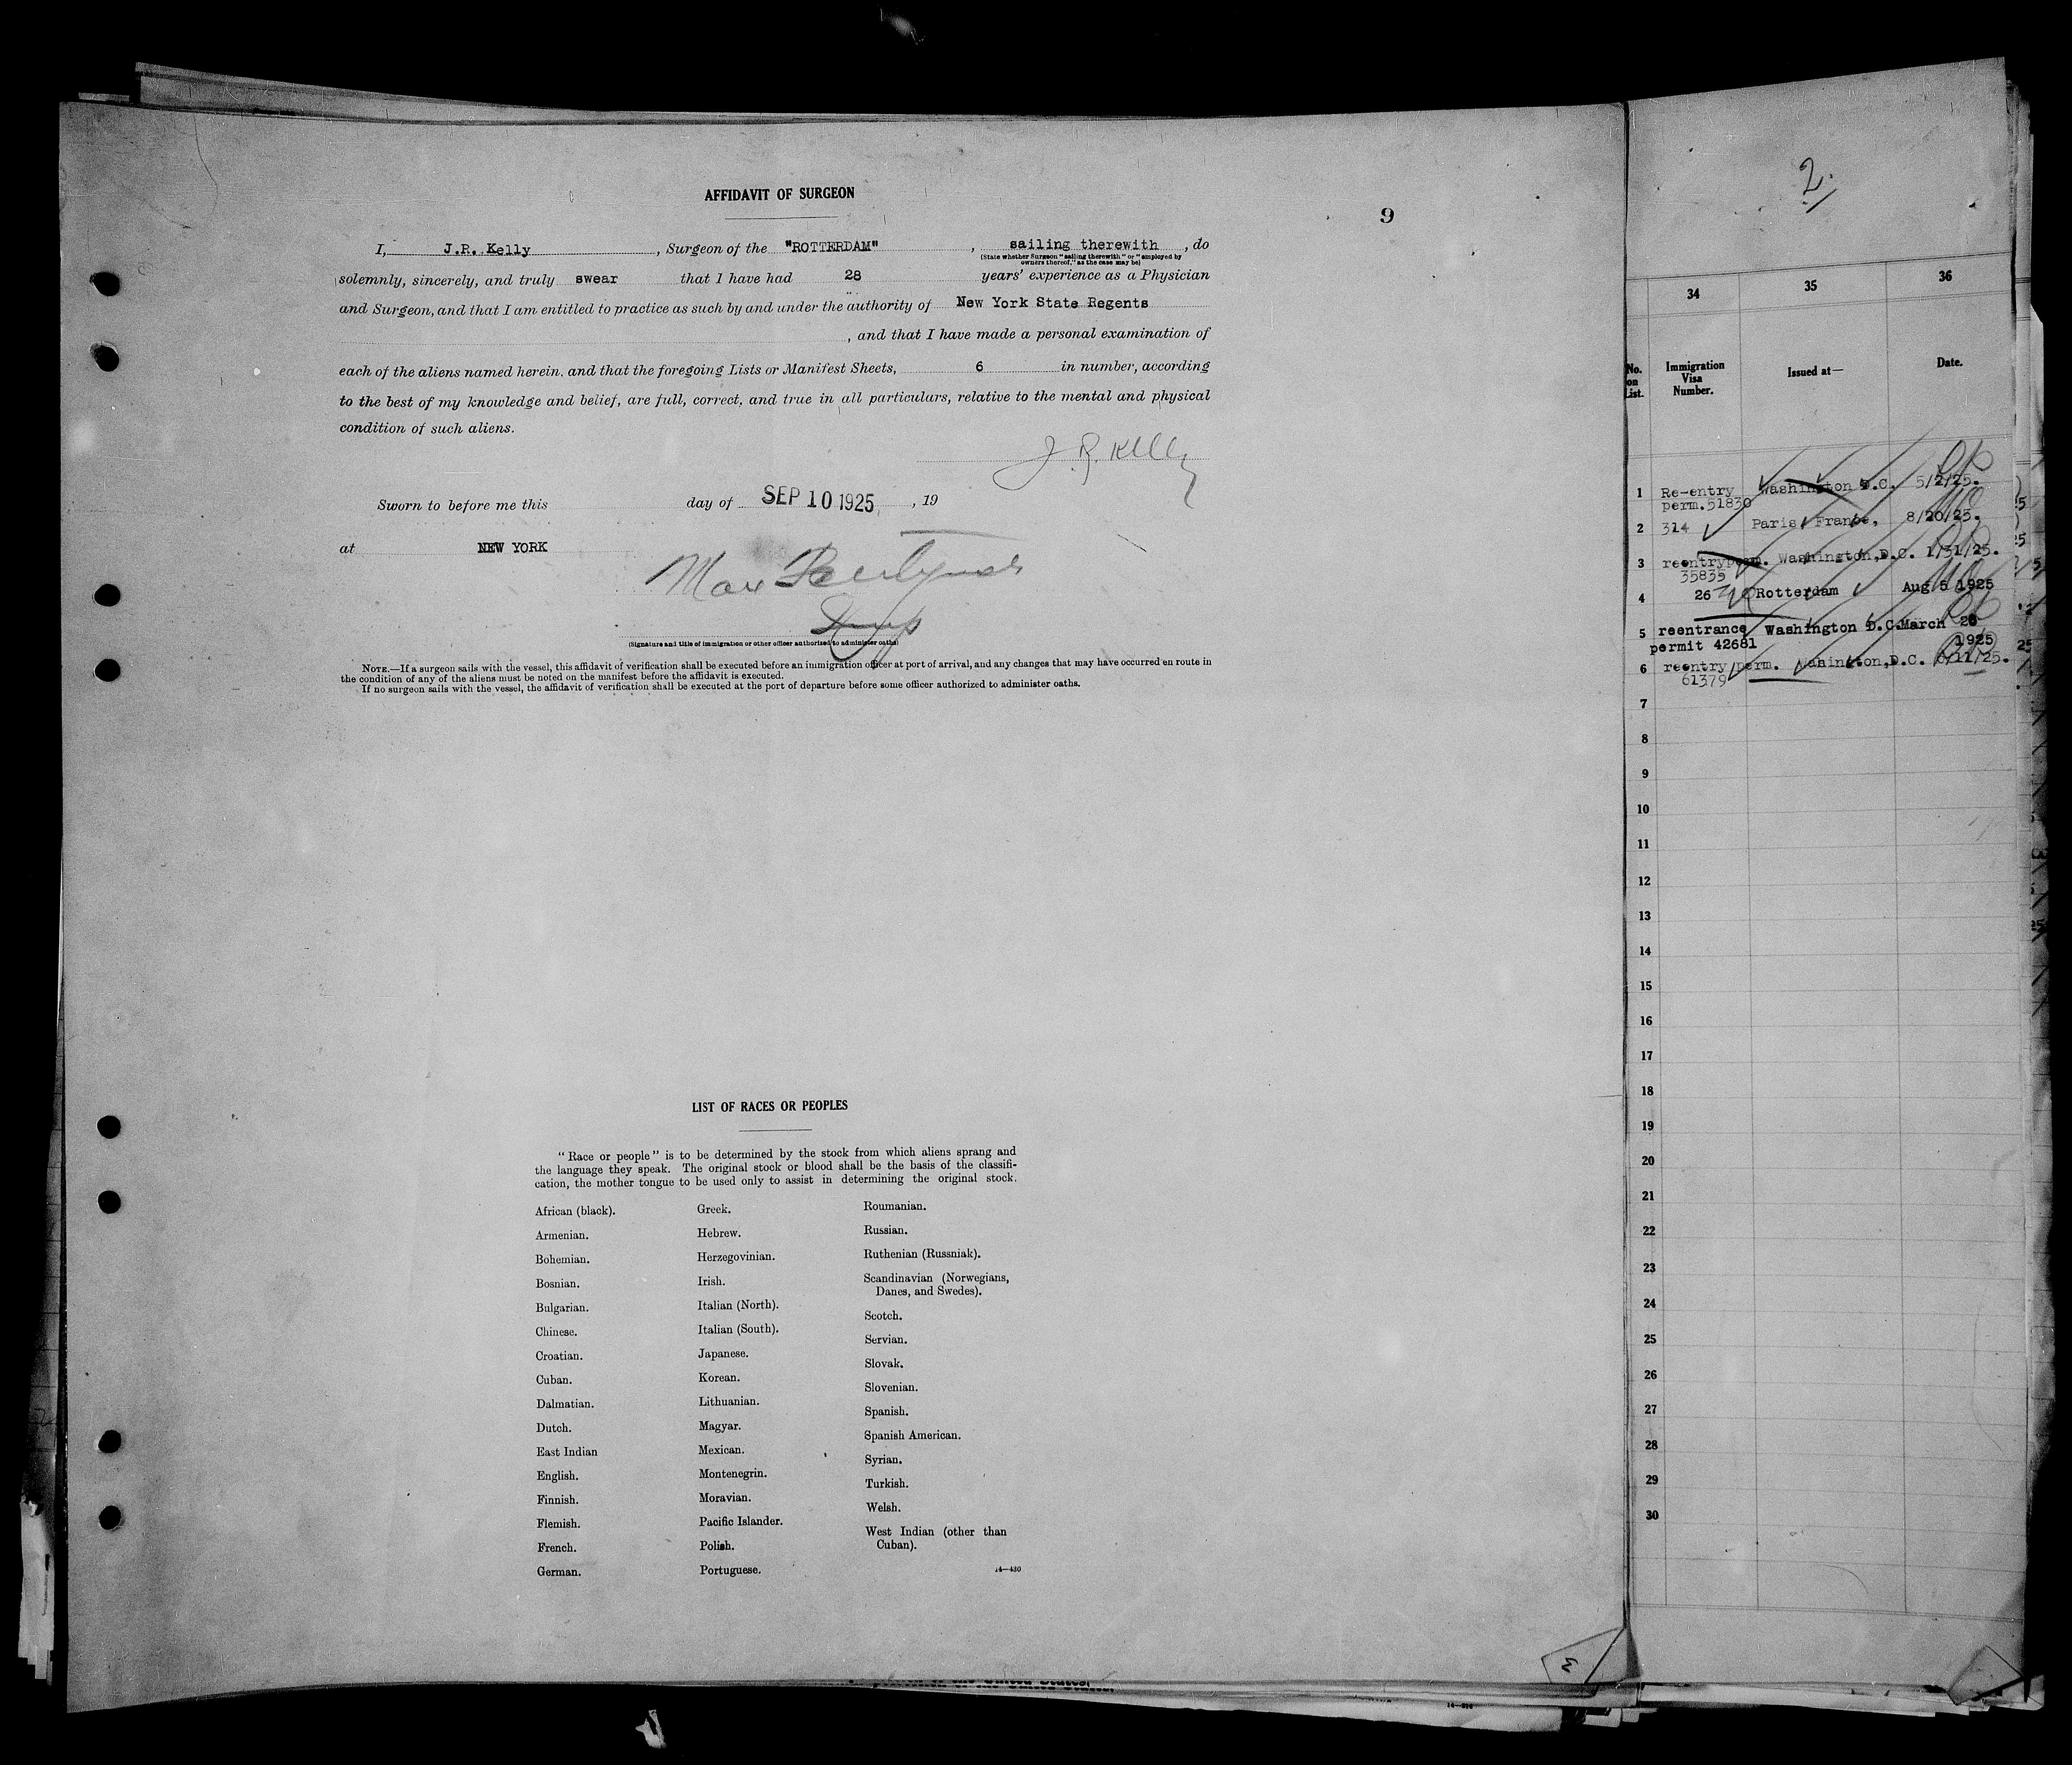 AFFIDAVIT OF SURGEON
9
I, J.R. Kelly, Surgeon of the "ROTTERDAM", sailing therewith, do
(State whether Surgeon "sailing therewith" or "employed by
owners thereof," as the case may be)
solemnly, sincerely, and truly swear that I have had 28 years' experience as a Physician
and Surgeon, and that I am entitled to practice as such by and under the authority of New York State Regents
, and that I have made a personal examination of
each of the aliens named herein, and that the foregoing Lists or Manifest Sheets, 6 in number, according
to the best of my knowledge and belief, are full, correct, and true in all particulars, relative to the mental and physical
condition of such aliens.
J. R. Kelly
Sworn to before me this day of SEP 10 1925, 19
at NEW YORK
Max
(Signature and title of immigration or other officer authorized to administer oaths)
NOTE.—If a surgeon sails with the vessel, this affidavit of verification shall be executed before an immigration officer at port of arrival, and any changes that may have occurred en route in
the condition of any of the aliens must be noted on the manifest before the affidavit is executed.
If no surgeon sails with the vessel, the affidavit of verification shall be executed at the port of departure before some officer authorized to administer oaths.
LIST OF RACES OR PEOPLES
"Race or people" is to be determined by the stock from which aliens sprang and
the language they speak. The original stock or blood shall be the basis of the classifi-
cation, the mother tongue to be used only to assist in determining the original stock.
African (black).
Armenian.
Bohemian.
Bosnian.
Bulgarian.
Chinese.
Croatian.
Cuban.
Dalmatian.
Dutch.
East Indian
English.
Finnish.
Flemish.
French.
German.
Greek.
Hebrew.
Herzegovinian.
Irish.
Italian (North).
Italian (South).
Japanese.
Korean.
Lithuanian.
Magyar.
Mexican.
Montenegrin.
Moravian.
Pacific Islander.
Polish.
Portuguese.
Roumanian.
Russian.
Ruthenian (Russniak).
Scandinavian (Norwegians,
Danes, and Swedes).
Scotch.
Servian.
Slovak.
Slovenian.
Spanish.
Spanish American.
Syrian.
Turkish.
Welsh.
West Indian (other than
Cuban).
14—430
3
2.
34 35 36
No.
on
List.
Immigration
Visa
Number.
Issued at—
Date.
1 Re-entry Washington D.C. 5/2/25.
perm. 51830
2 314 Paris France, 8/20/25.
3 reentry perm. Washington, D.C. 1/31/25.
35835
4 26 Rotterdam Aug 5 1925
5 reentrance Washington D.C. March 28
permit 42681 1925
6 reentry perm. Wahington, D.C. 6/11/25.
61379
7
8
9
10
11
12
13
14
15
16
17
18
19
20
21
22
23
24
25
26
27
28
29
30